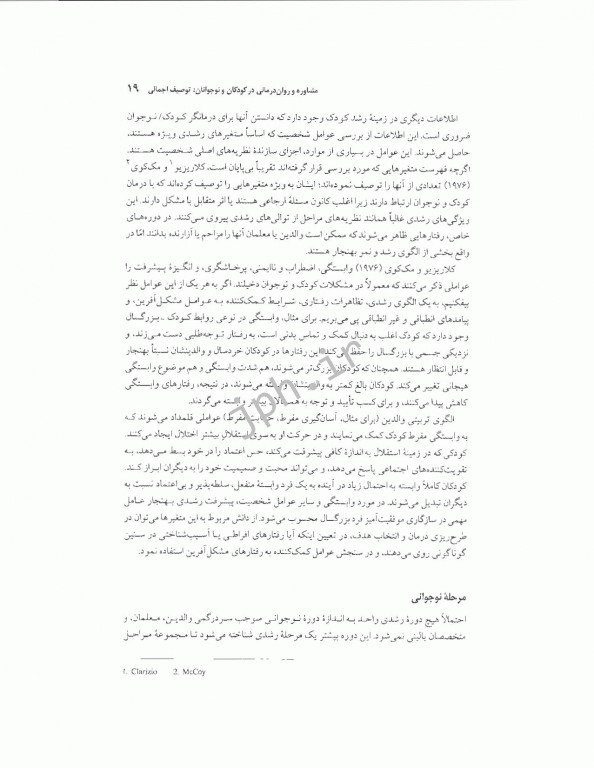 مشاوره و روان‌درمانی در کودکان و نوجوانان: توصیف اجمالی ۱۹
اطلاعات دیگری در زمینهٔ رشد کودک وجود دارد که دانستن آنها برای درمانگر کودک/ نوجوان
ضروری است. این اطلاعات از بررسی عوامل شخصیت که اساساً متغیرهای رشدی ویژه هستند،
حاصل می‌شوند. این عوامل در بسیاری از موارد، اجزای سازندهٔ نظریه‌های اصلی شخصیت هستند.
اگرچه فهرست متغیرهایی که مورد بررسی قرار گرفته‌اند تقریباً بی‌پایان است، کلاریزیو۱ و مک‌کوی۲
(۱۹۷۶) تعدادی از آنها را توصیف نموده‌اند؛ ایشان به ویژه متغیرهایی را توصیف کرده‌اند که با درمان
کودک و نوجوان ارتباط دارند زیرا اغلب کانون مسئلهٔ ارجاعی هستند یا اثر متقابل با مشکل دارند. این
ویژگی‌های رشدی غالباً همانند نظریه‌های مراحل از توالی‌های رشدی پیروی می‌کنند. در دوره‌های
خاص، رفتارهایی ظاهر می‌شوند که ممکن است والدین یا معلمان آنها را مزاحم یا آزارنده بدانند امّا در
واقع بخشی از الگوی رشد و نمو بهنجار هستند.
کلاریزیو و مک‌کوی (۱۹۷۶) وابستگی، اضطراب و ناایمنی، پرخاشگری، و انگیزهٔ پیشرفت را
عواملی ذکر می‌کنند که معمولاً در مشکلات کودک و نوجوان دخیلند. اگر به هر یک از این عوامل نظر
بیفکنیم، به یک الگوی رشدی، تظاهرات رفتاری، شرایط کمک‌کننده به عوامل مشکل‌آفرین، و
پیامدهای انطباقی و غیر انطباقی پی می‌بریم. برای مثال، وابستگی در نوعی روابط کودک ـ بزرگسال
وجود دارد که کودک اغلب به دنبال کمک و تماس بدنی است، به رفتار توجه‌طلبی دست می‌زند، و
نزدیکی جسمی با بزرگسال را حفظ می‌کند. این رفتارها در کودکان خردسال و والدینشان نسبتاً بهنجار
و قابل انتظار هستند. همچنان که کودکان بزرگ‌تر می‌شوند، هم شدت وابستگی و هم موضوع وابستگی
هیجانی تغییر می‌کند. کودکان بالغ کمتر به والدینشان وابسته می‌شوند، در نتیجه، رفتارهای وابستگی
کاهش پیدا می‌کنند، و برای کسب تأیید و توجه به همسالان بیشتر وابسته می‌گردند.
الگوی تربیتی والدین (برای مثال، آسان‌گیری مفرط، حمایت مفرط) عواملی قلمداد می‌شوند که
به وابستگی مفرط کودک کمک می‌نمایند و در حرکت او به سوی استقلال بیشتر اختلال ایجاد می‌کنند.
کودکی که در زمینهٔ استقلال به اندازهٔ کافی پیشرفت می‌کند، حس اعتماد را در خود بسط می‌دهد، به
تقویت‌کننده‌های اجتماعی پاسخ می‌دهد، و می‌تواند محبت و صمیمیت خود را به دیگران ابراز کند.
کودکان کاملاً وابسته به احتمال زیاد در آینده به یک فرد وابستهٔ منفعل، سلطه‌پذیر و بی‌اعتماد نسبت به
دیگران تبدیل می‌شوند. در مورد وابستگی و سایر عوامل شخصیت، پیشرفت رشدی بهنجار عامل
مهمی در سازگاری موفقیت‌آمیز فرد بزرگسال محسوب می‌شود. از دانش مربوط به این متغیرها می‌توان در
طرح‌ریزی درمان و انتخاب هدف، در تعیین اینکه آیا رفتارهای افراطی یا آسیب‌شناختی در سنین
گوناگونی روی می‌دهند، و در سنجش عوامل کمک‌کننده به رفتارهای مشکل‌آفرین استفاده نمود.
مرحلهٔ نوجوانی
احتمالاً هیچ دورهٔ رشدی واحد به اندازهٔ دورهٔ نوجوانی موجب سردرگمی والدین، معلمان، و
متخصصان بالینی نمی‌شود. این دوره بیشتر یک مرحلهٔ رشدی شناخته می‌شود تا مجموعهٔ مراحل
1. Clarizio 2. McCoy